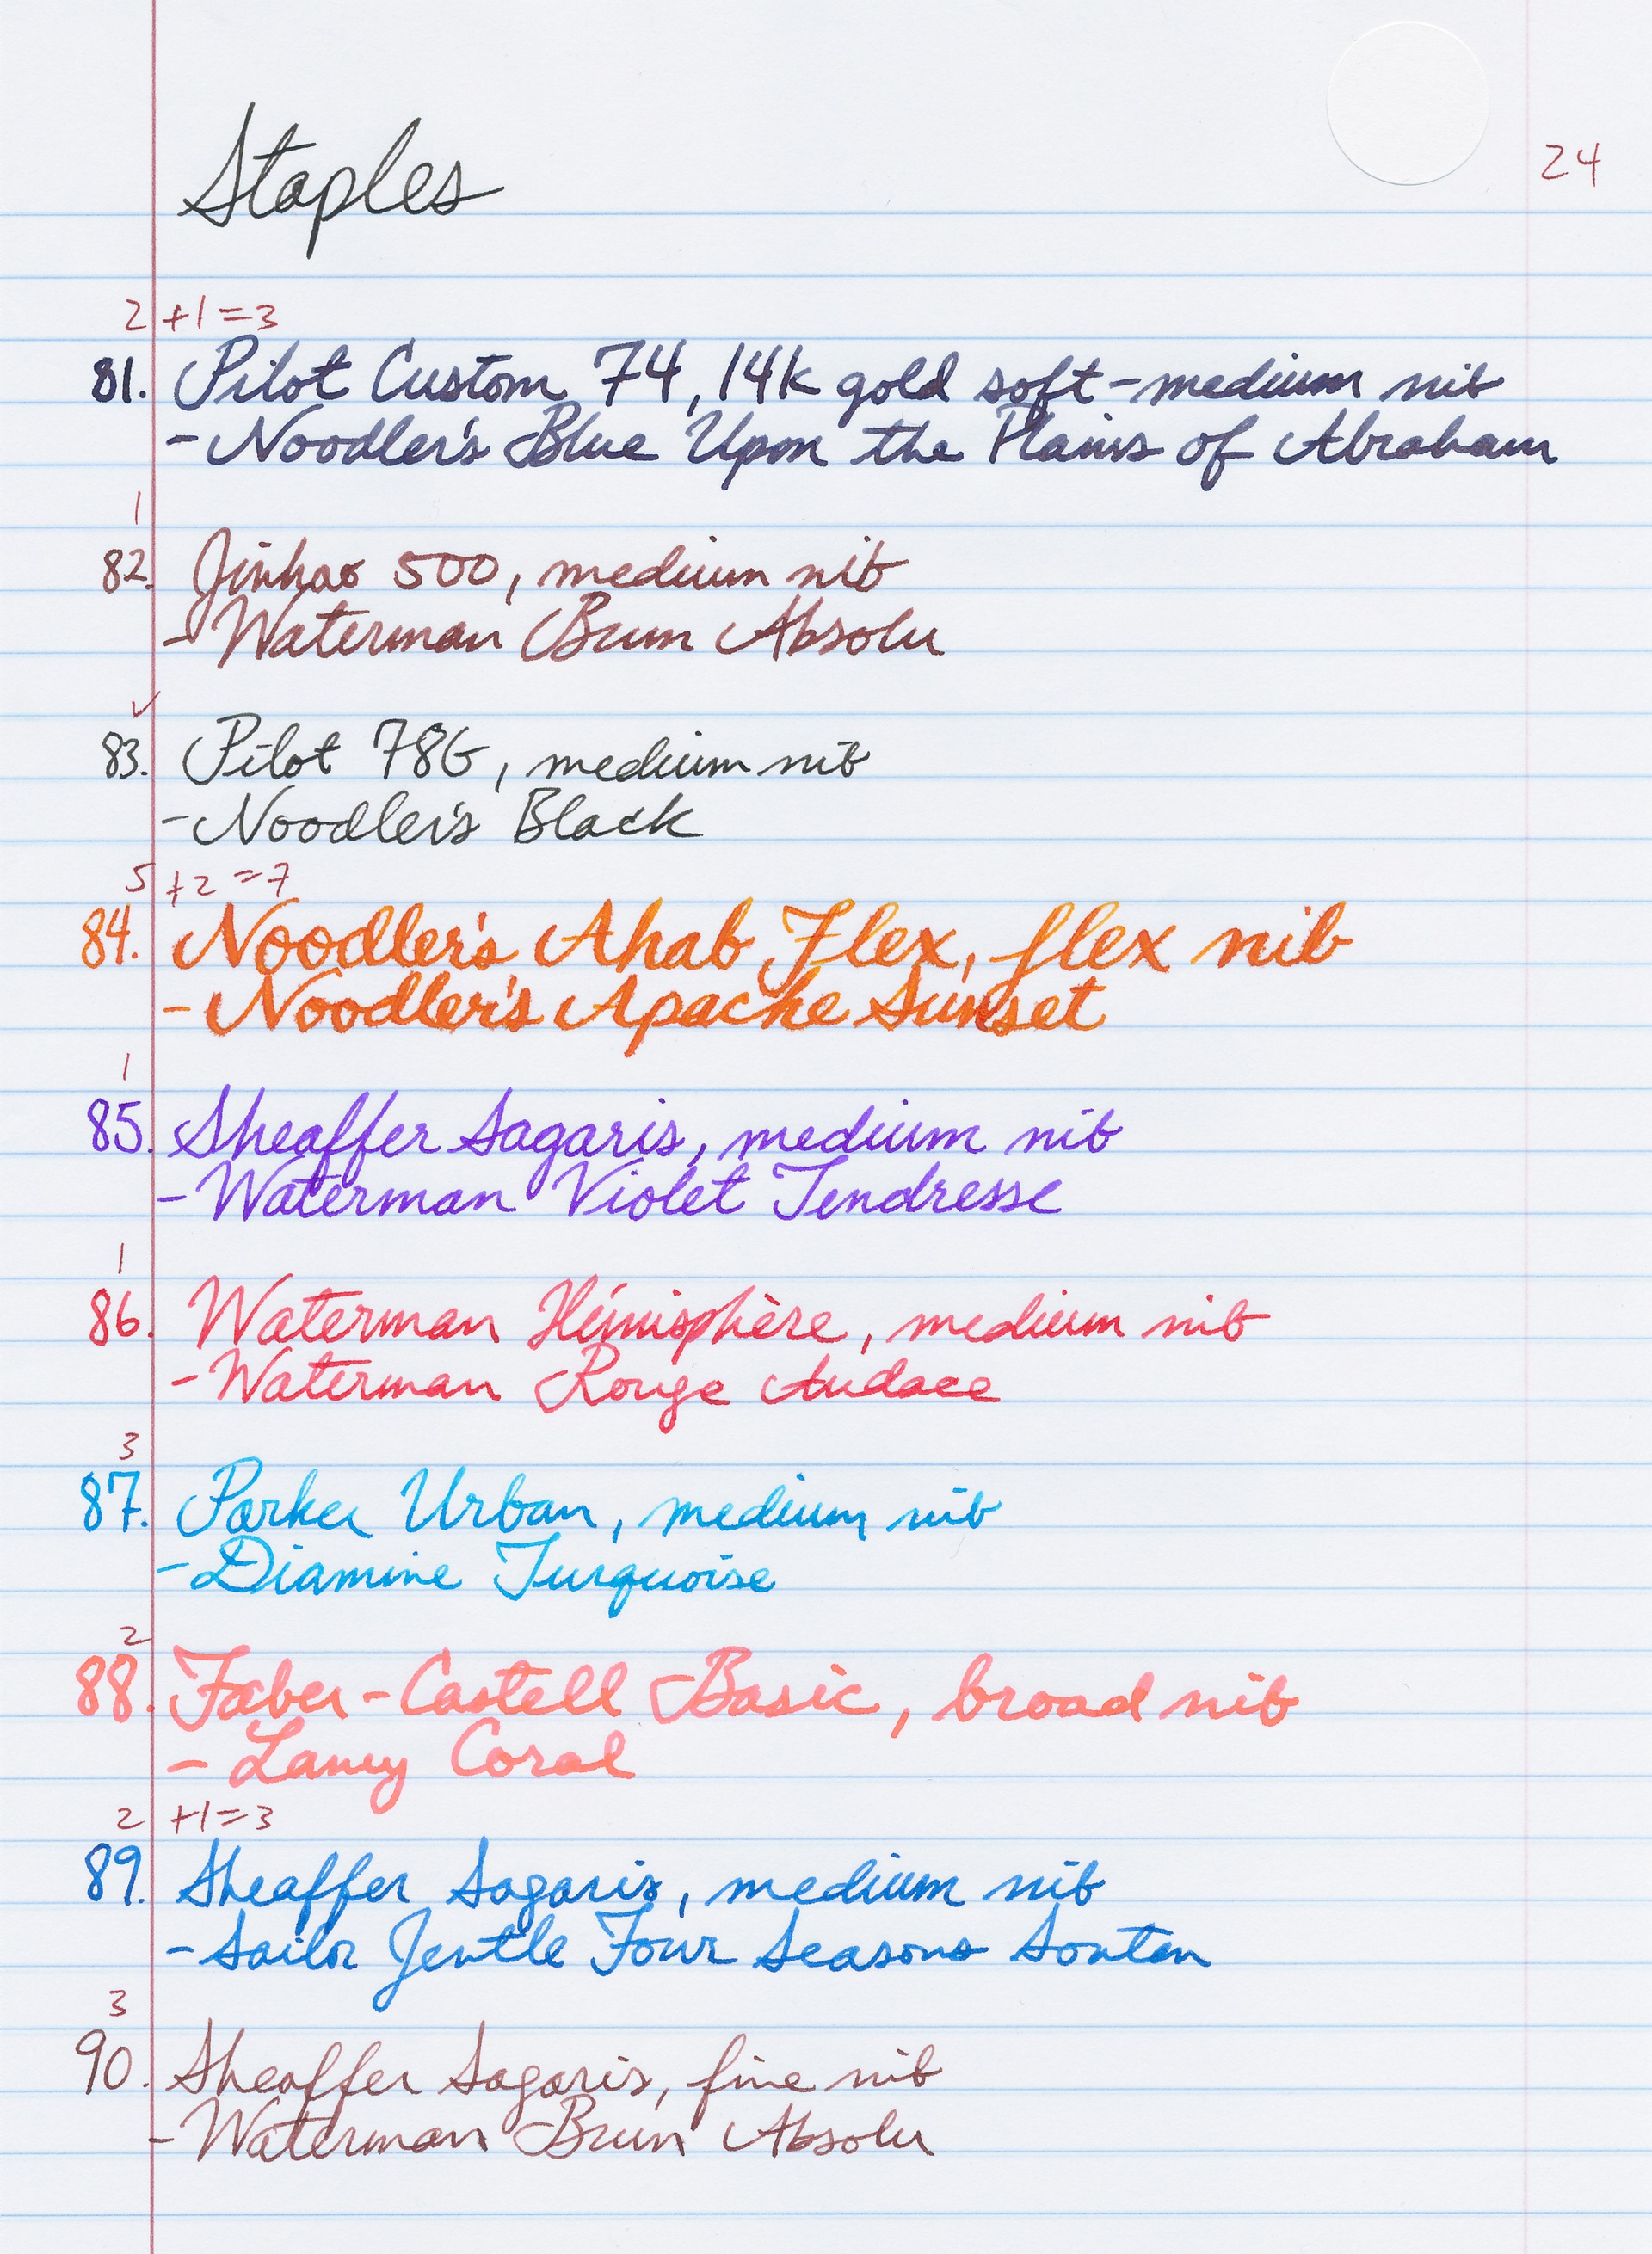 Staples
24
2 +1=3
81. Pilot Custom 74, 14k gold soft-medium nib
- Noodler's Blue Upon the Plains of Abraham
1
82. Jinhao 500, medium nib
- Waterman Brun Absolu
✓
83. Pilot 78G, medium nib
- Noodler's Black
5 +2=7
84. Noodler's Ahab Flex, flex nib
- Noodler's Apache Sunset
1
85. Sheaffer Sagaris, medium nib
- Waterman Violet Tendresse
1
86. Waterman Hémisphère, medium nib
- Waterman Rouge Audace
3
87. Parker Urban, medium nib
- Diamine Turquoise
2
88. Faber-Castell Basic, broad nib
- Lamy Coral
2 +1=3
89. Sheaffer Sagaris, medium nib
- Sailor Jentle Four Seasons Souten
3
90. Sheaffer Sagaris, fine nib
- Waterman Brun Absolu